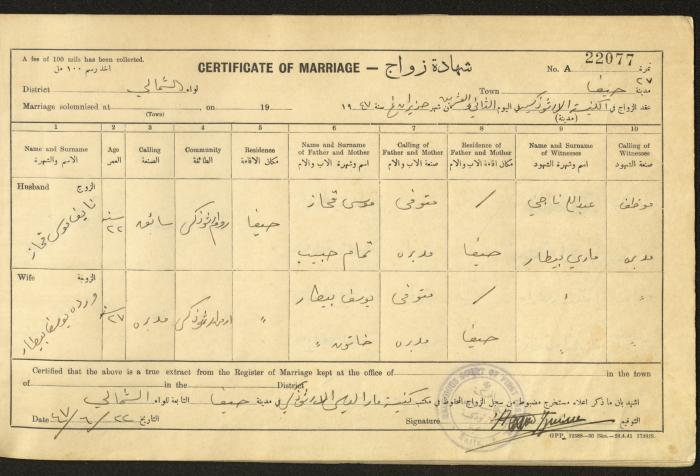 A fee of 100 mils has been collected.
اخذ رسم ١٠٠ مل
CERTIFICATE OF MARRIAGE — شهادة زواج
No. A 22077 نمرة
٢٧
District الشمالي لواء
Town حيفا مدينة
Marriage solemnised at (Town) on 19
عقد الزواج في الكنيسة الارثوذكسية (مدينة) اليوم الثاني والعشرين شهر حزيران سنة ١٩٤٧
1 2 3 4 5 6 7 8 9 10
Name and Surname Age Calling Community Residence Name and Surname of Father and Mother Calling of Father and Mother Residence of Father and Mother Name and Surname of Witnesses Calling of Witnesses
الاسم والشهرة العمر الصنعة الطائفة مكان الاقامة اسم وشهرة الاب والام صنعة الاب والام مكان اقامة الاب والام اسم وشهرة الشهود صنعة الشهود
Husband الزوج
نايف موسى قحاز سنة ٢٢ سائق روم ارثوذكس حيفا موسى قحاز متوفى / عبدالله ناجي موظف
تمام حبيب مدبره حيفا ماري بيطار مدبره
Wife الزوجة
ورده يوسف بيطار سنة ٢٧ مدبره روم ارثوذكس " يوسف بيطار متوفى / " "
خاتون " مدبره حيفا " "
Certified that the above is a true extract from the Register of Marriage kept at the office of in the town
of in the District
اشهد بان ما ذكر اعلاه مستخرج مضبوط من سجل الزواج المحفوظ في مكتب كنيسة مار الياس الارثوذكسي في مدينة حيفا التابعة للواء الشمالي
Date ٤٧/٦/٢٢ التاريخ
Signature التوقيع
GPP. 12588—50 Bks.—28.4.41 1739/S.